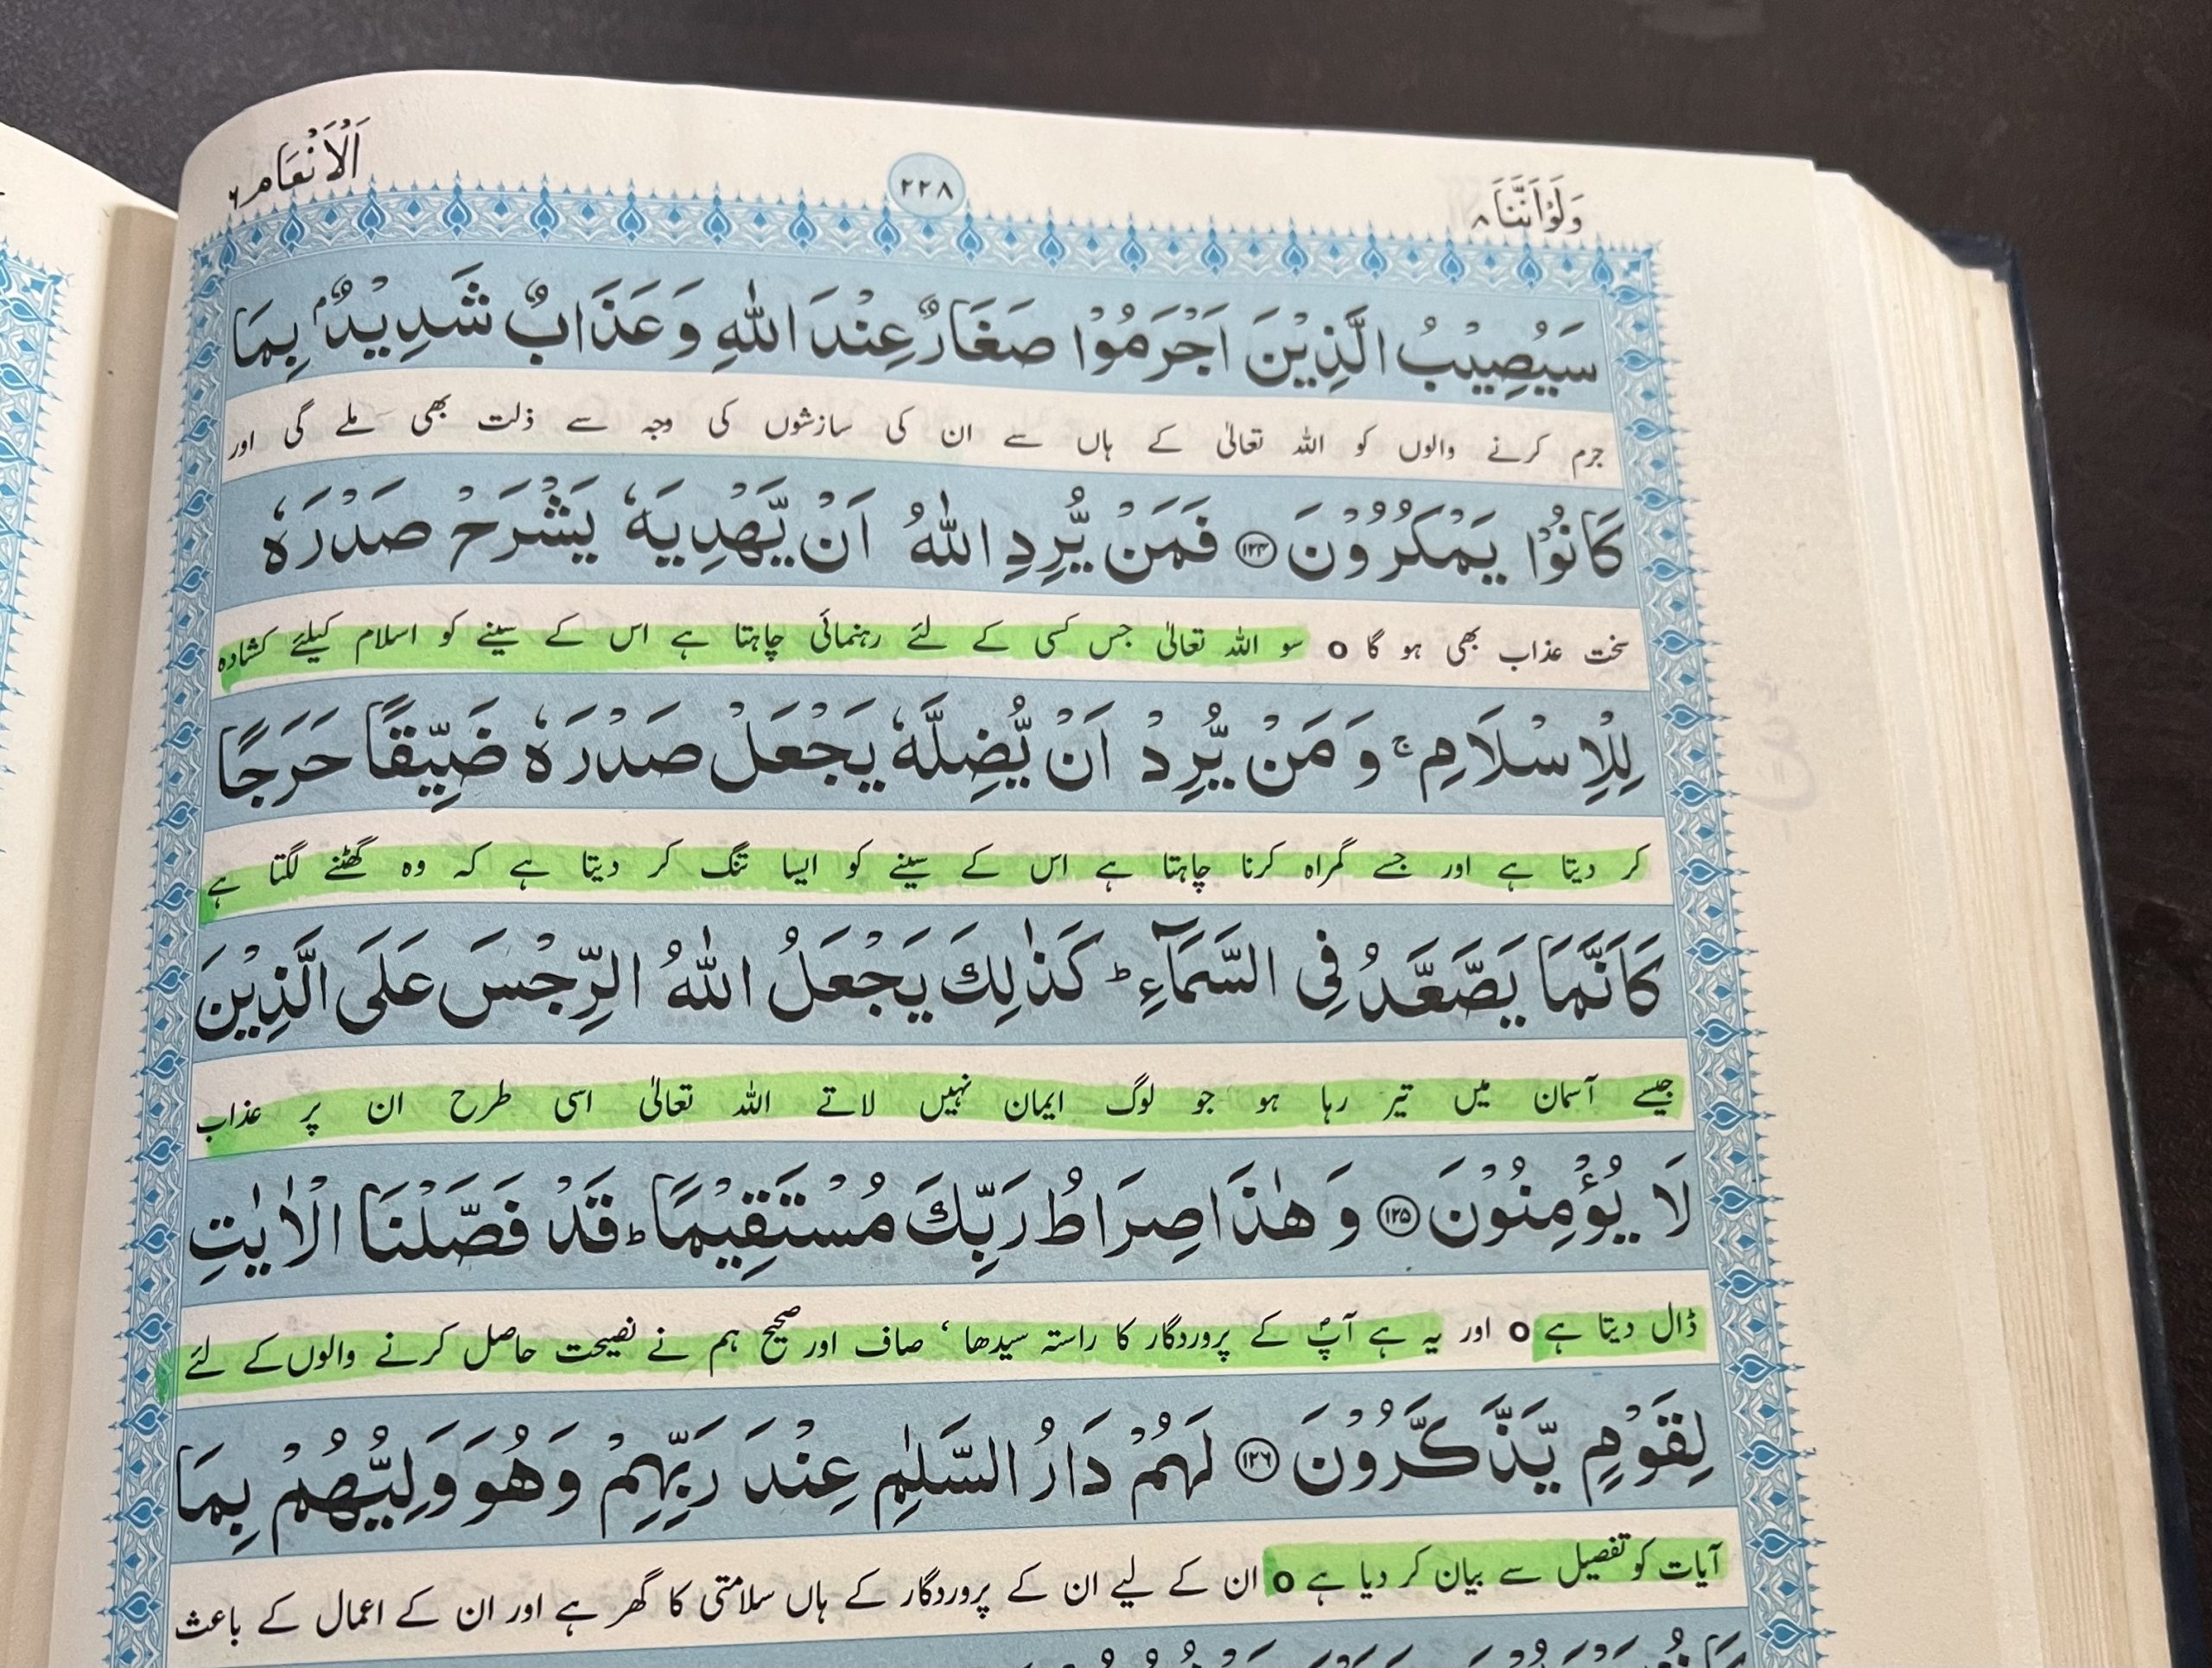 وَلَوْاَنَّنَا ۸
۲۲۸
اَلْاَنْعَام ۶
سَيُصِيْبُ الَّذِيْنَ اَجْرَمُوْا صَغَارٌ عِنْدَ اللّٰهِ وَ عَذَابٌ شَدِيْدٌۢ بِمَا
جرم کرنے والوں کو اللہ تعالیٰ کے ہاں سے ان کی سازشوں کی وجہ سے ذلت بھی ملے گی اور
كَانُوْا يَمْكُرُوْنَ ﴿۱۲۴﴾ فَمَنْ يُّرِدِ اللّٰهُ اَنْ يَّهْدِيَهٗ يَشْرَحْ صَدْرَهٗ
سخت عذاب بھی ہو گا o سو اللہ تعالیٰ جس کسی کے لئے رہنمائی چاہتا ہے اس کے سینے کو اسلام کیلئے کشادہ
لِلْاِسْلَامِ ۚ وَ مَنْ يُّرِدْ اَنْ يُّضِلَّهٗ يَجْعَلْ صَدْرَهٗ ضَيِّقًا حَرَجًا
کر دیتا ہے اور جسے گمراہ کرنا چاہتا ہے اس کے سینے کو ایسا تنگ کر دیتا ہے کہ وہ گھٹنے لگتا ہے
كَاَنَّمَا يَصَّعَّدُ فِى السَّمَآءِ ؕ كَذٰلِكَ يَجْعَلُ اللّٰهُ الرِّجْسَ عَلَى الَّذِيْنَ
جیسے آسمان میں تیر رہا ہو جو لوگ ایمان نہیں لاتے اللہ تعالیٰ اسی طرح ان پر عذاب
لَا يُؤْمِنُوْنَ ﴿۱۲۵﴾ وَ هٰذَا صِرَاطُ رَبِّكَ مُسْتَقِيْمًا ؕ قَدْ فَصَّلْنَا الْاٰيٰتِ
ڈال دیتا ہے o اور یہ ہے آپؐ کے پروردگار کا راستہ سیدھا ٬ صاف اور صحیح ہم نے نصیحت حاصل کرنے والوں کے لئے
لِقَوْمٍ يَّذَّكَّرُوْنَ ﴿۱۲۶﴾ لَهُمْ دَارُ السَّلٰمِ عِنْدَ رَبِّهِمْ وَ هُوَ وَلِيُّهُمْ بِمَا
آیات کو تفصیل سے بیان کر دیا ہے o ان کے لیے ان کے پروردگار کے ہاں سلامتی کا گھر ہے اور ان کے اعمال کے باعث